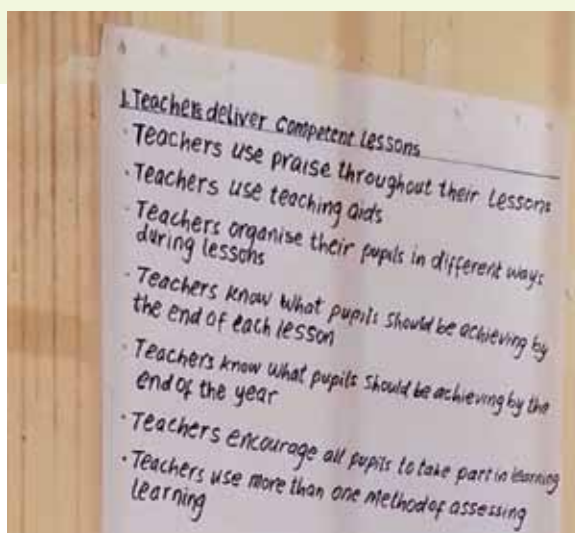 1. Teachers deliver competent lessons
· Teachers use praise throughout their lessons
· Teachers use teaching aids
· Teachers organise their pupils in different ways
during lessons
· Teachers know what pupils should be achieving by
the end of each lesson
· Teachers know what pupils should be achieving by the
end of the year
· Teachers encourage all pupils to take part in learning
· Teachers use more than one method of assessing
learning